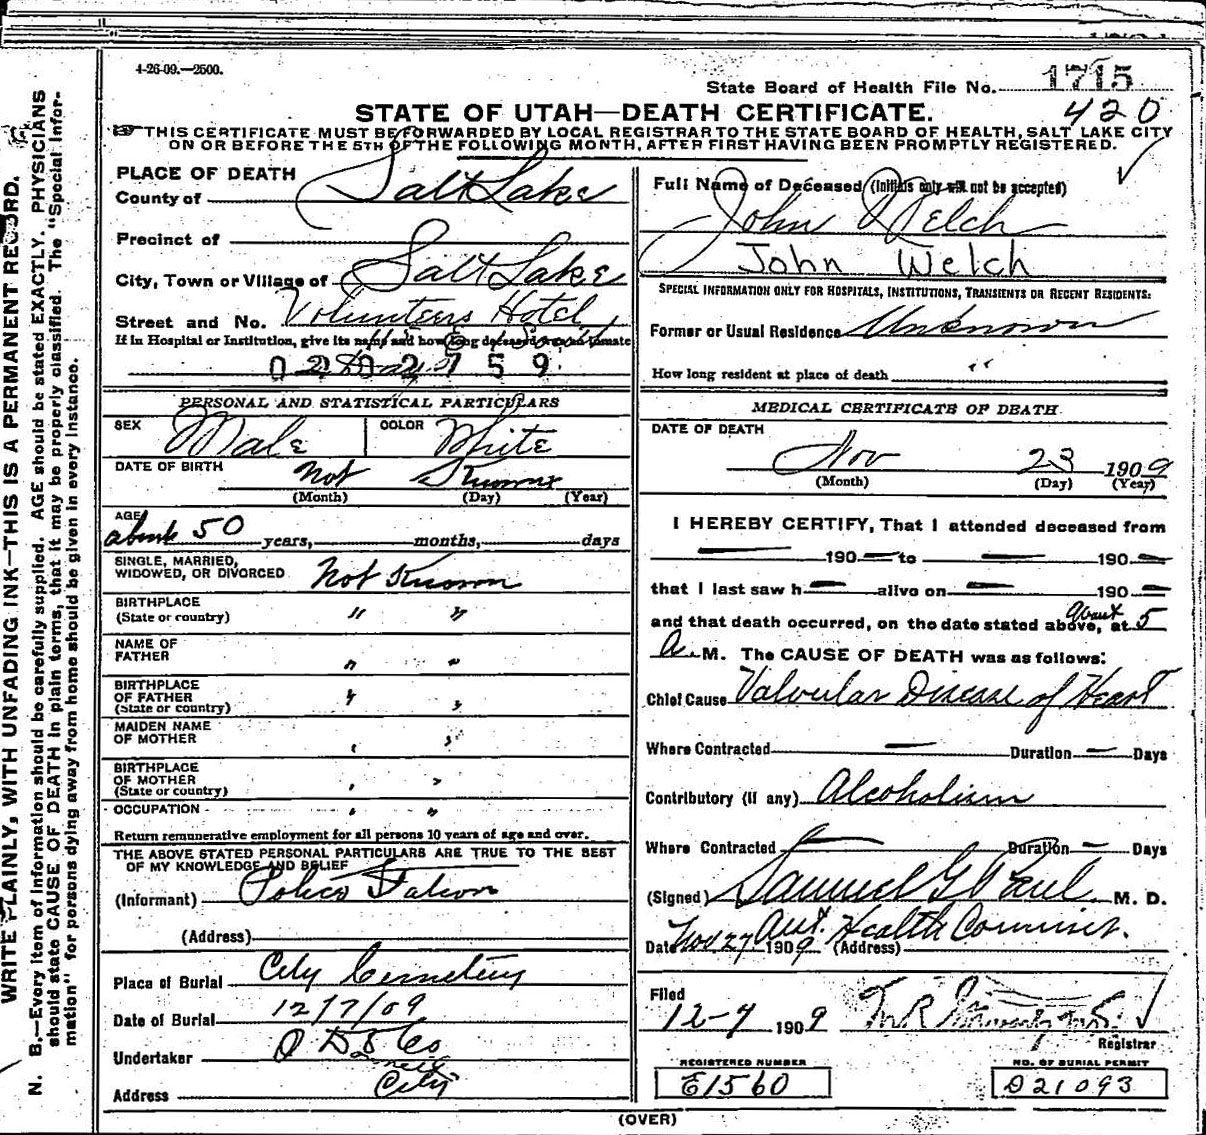 4-26-09.—2500.
State Board of Health File No. 1715
420
STATE OF UTAH—DEATH CERTIFICATE.
THIS CERTIFICATE MUST BE FORWARDED BY LOCAL REGISTRAR TO THE STATE BOARD OF HEALTH, SALT LAKE CITY
ON OR BEFORE THE 5TH OF THE FOLLOWING MONTH, AFTER FIRST HAVING BEEN PROMPTLY REGISTERED.
WRITE PLAINLY, WITH UNFADING INK—THIS IS A PERMANENT RECORD.
N. B.—Every item of information should be carefully supplied. AGE should be stated EXACTLY. PHYSICIANS
should state CAUSE OF DEATH in plain terms, that it may be properly classified. The "Special Infor-
mation" for persons dying away from home should be given in every instance.
PLACE OF DEATH
County of Salt Lake
Precinct of
City, Town or Village of Salt Lake
Street and No. Volunteers Hotel
If in Hospital or Institution, give its name and how long deceased was an inmate
0202759
PERSONAL AND STATISTICAL PARTICULARS
SEX Male COLOR White
DATE OF BIRTH Not Known
(Month) (Day) (Year)
AGE about 50 years, months, days
SINGLE, MARRIED,
WIDOWED, OR DIVORCED Not Known
BIRTHPLACE
(State or country) " "
NAME OF
FATHER " "
BIRTHPLACE
OF FATHER
(State or country) " "
MAIDEN NAME
OF MOTHER " "
BIRTHPLACE
OF MOTHER
(State or country) " "
OCCUPATION " "
Return remunerative employment for all persons 10 years of age and over.
THE ABOVE STATED PERSONAL PARTICULARS ARE TRUE TO THE BEST
OF MY KNOWLEDGE AND BELIEF
(Informant) Police Station
(Address)
Place of Burial City Cemetery
Date of Burial 12/7/09
Undertaker
Address City
Full Name of Deceased (Initials only will not be accepted)
John Welch
John Welch
SPECIAL INFORMATION ONLY FOR HOSPITALS, INSTITUTIONS, TRANSIENTS OR RECENT RESIDENTS:
Former or Usual Residence Unknown
How long resident at place of death "
MEDICAL CERTIFICATE OF DEATH
DATE OF DEATH
Nov 23 1909
(Month) (Day) (Year)
I HEREBY CERTIFY, That I attended deceased from
— 190 — to — 190 —
that I last saw h — alive on — 190 —
and that death occurred, on the date stated above, at about 5
A. M. The CAUSE OF DEATH was as follows:
Chief Cause Valvular Disease of Heart
Where Contracted — Duration — Days
Contributory (if any) Alcoholism
Where Contracted — Duration — Days
(Signed) Samuel G. Paul M. D.
Date Nov 27 1909 (Address) Asst. Health Commiss.
Filed
12-7 1909
Registrar
REGISTERED NUMBER
E1560
NO. OF BURIAL PERMIT
D21093
(OVER)